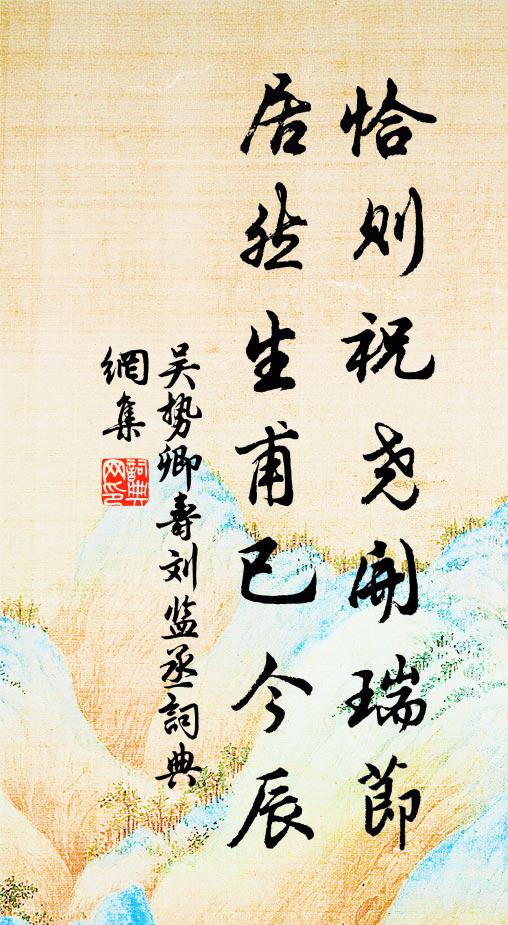 恰则祝尧開瑞節
居然生甫已今辰
吴势卿壽刘监丞詞典
網集
詞典
网印